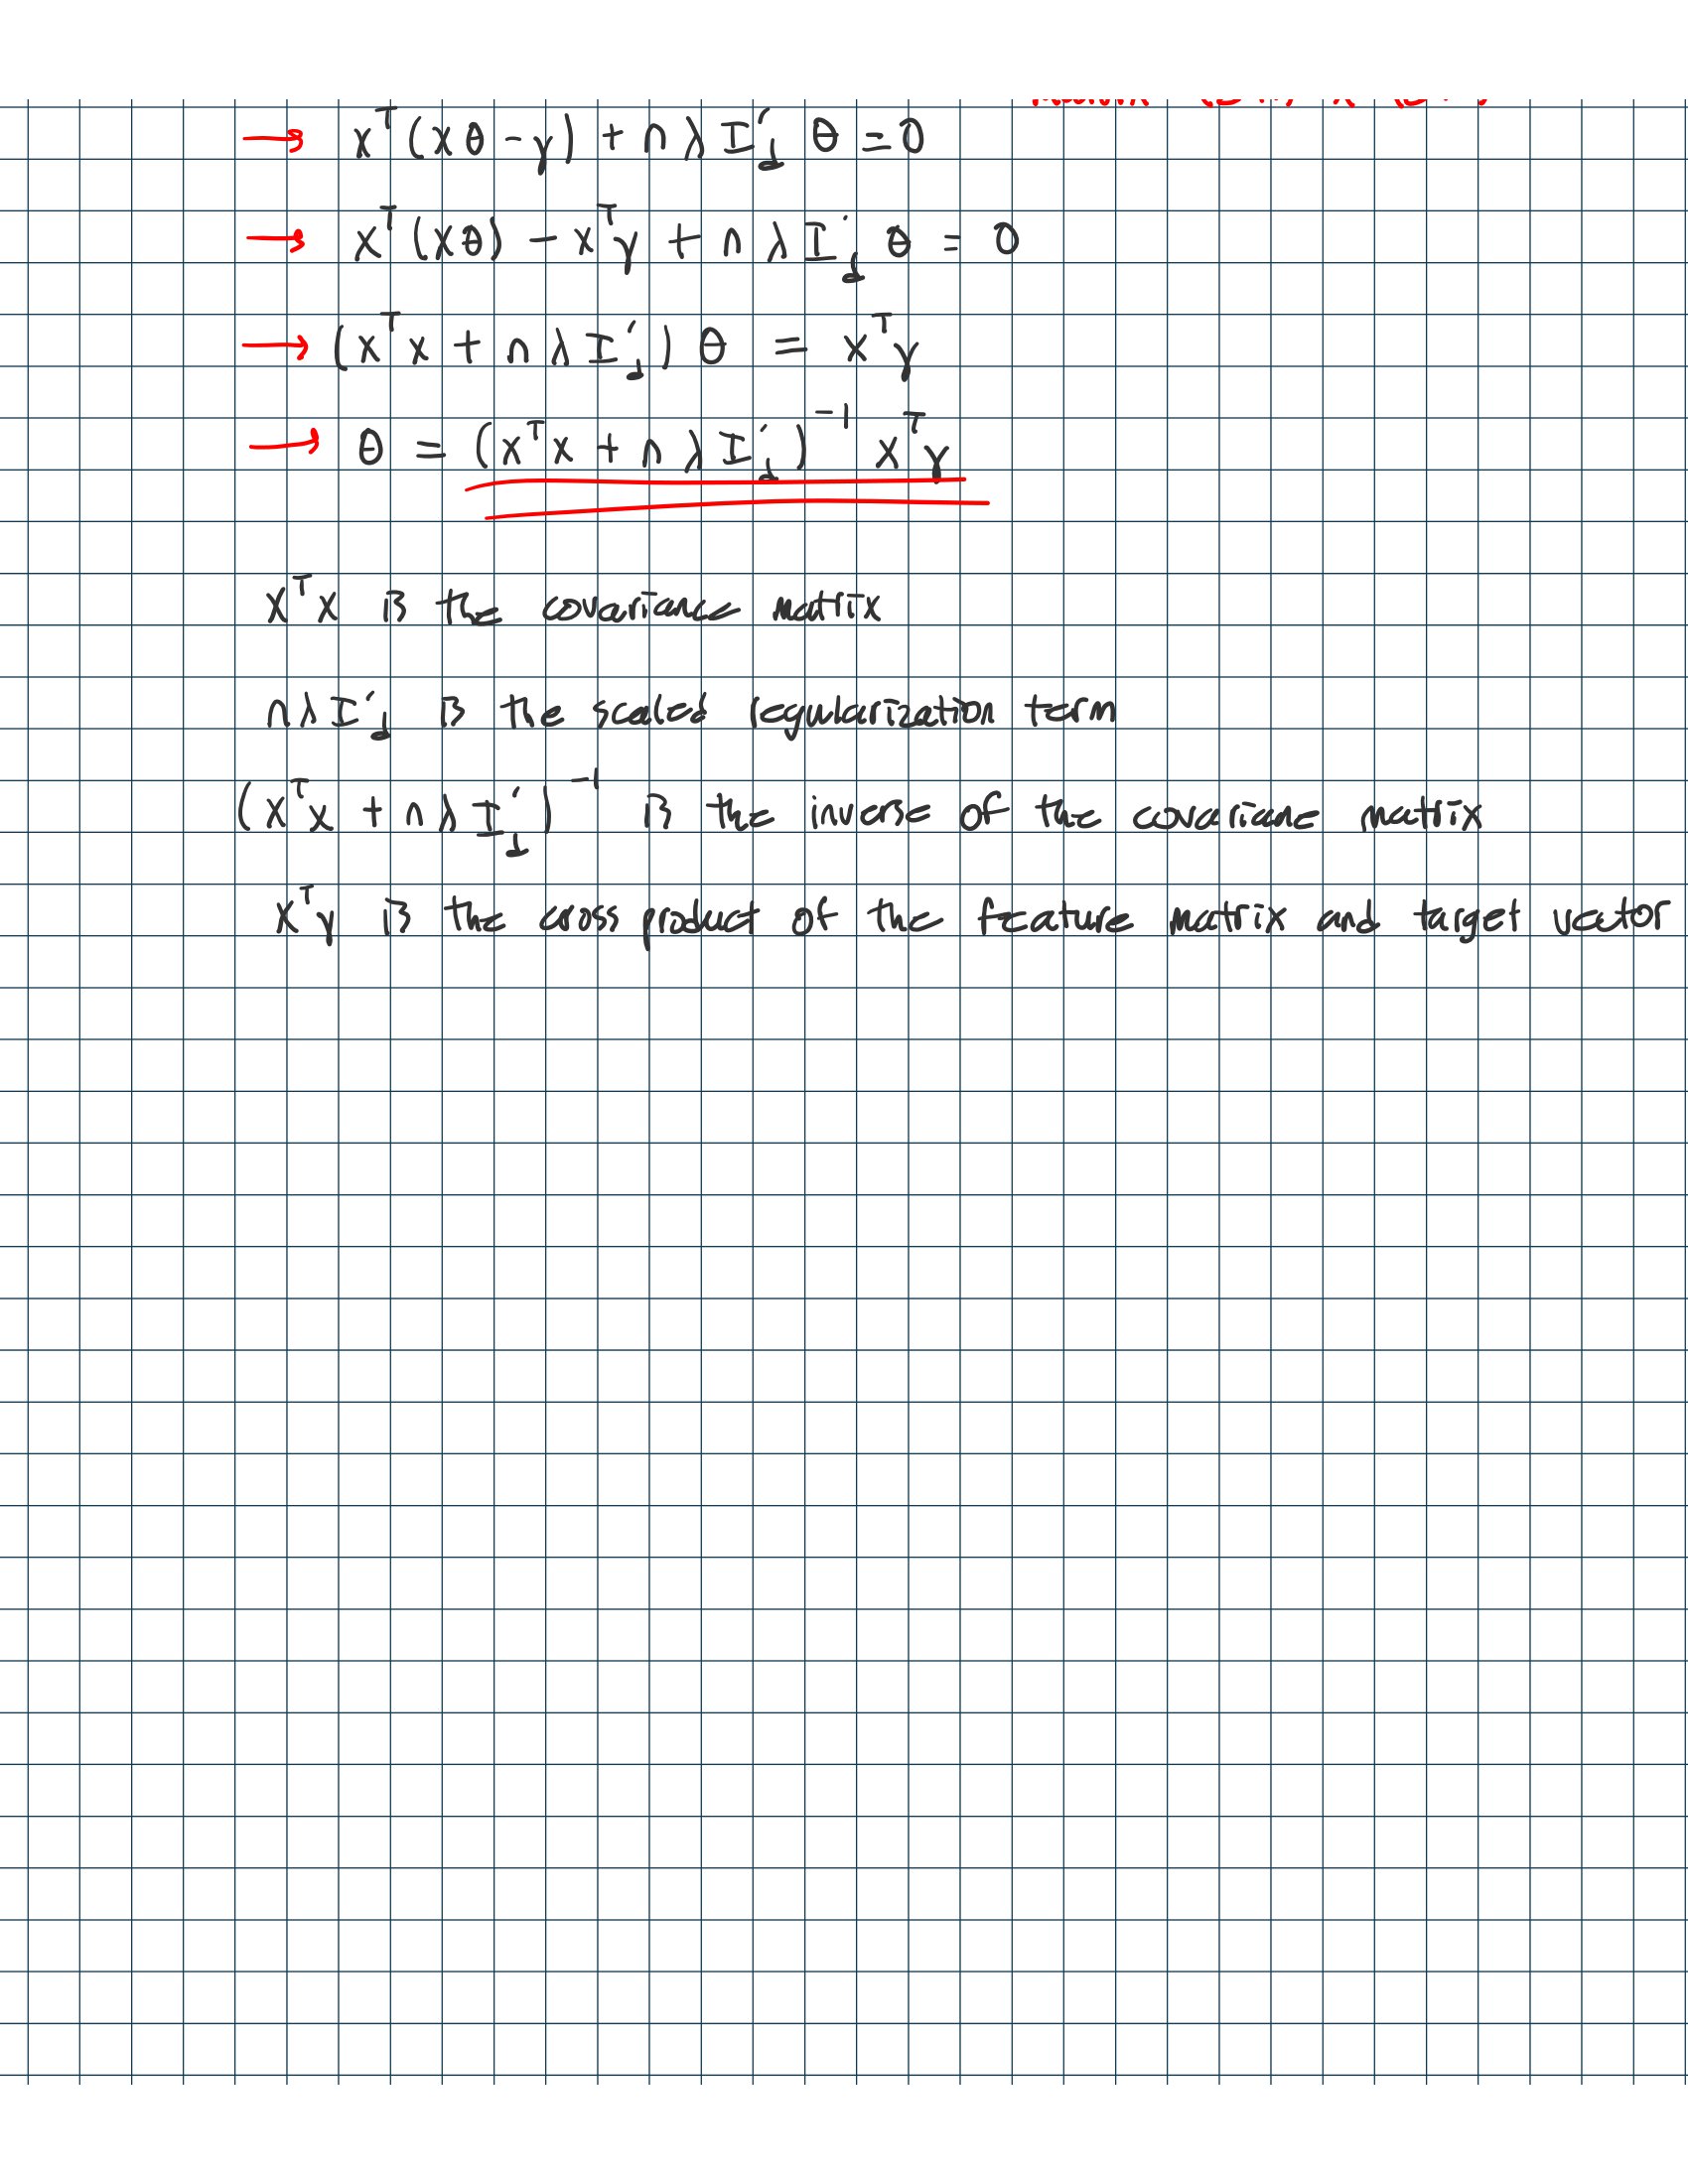 → x^T (xθ - y) + nλ I'_d θ = 0
→ x^T (xθ) - x^T y + nλ I'_d θ = 0
→ (x^T x + nλ I'_d) θ = x^T y
→ θ = (x^T x + nλ I'_d)^-1 x^T y
x^T x is the covariance matrix
nλ I'_d is the scaled regularization term
(x^T x + nλ I'_d)^-1 is the inverse of the covariane matrix
x^T y is the cross product of the feature matrix and target vector